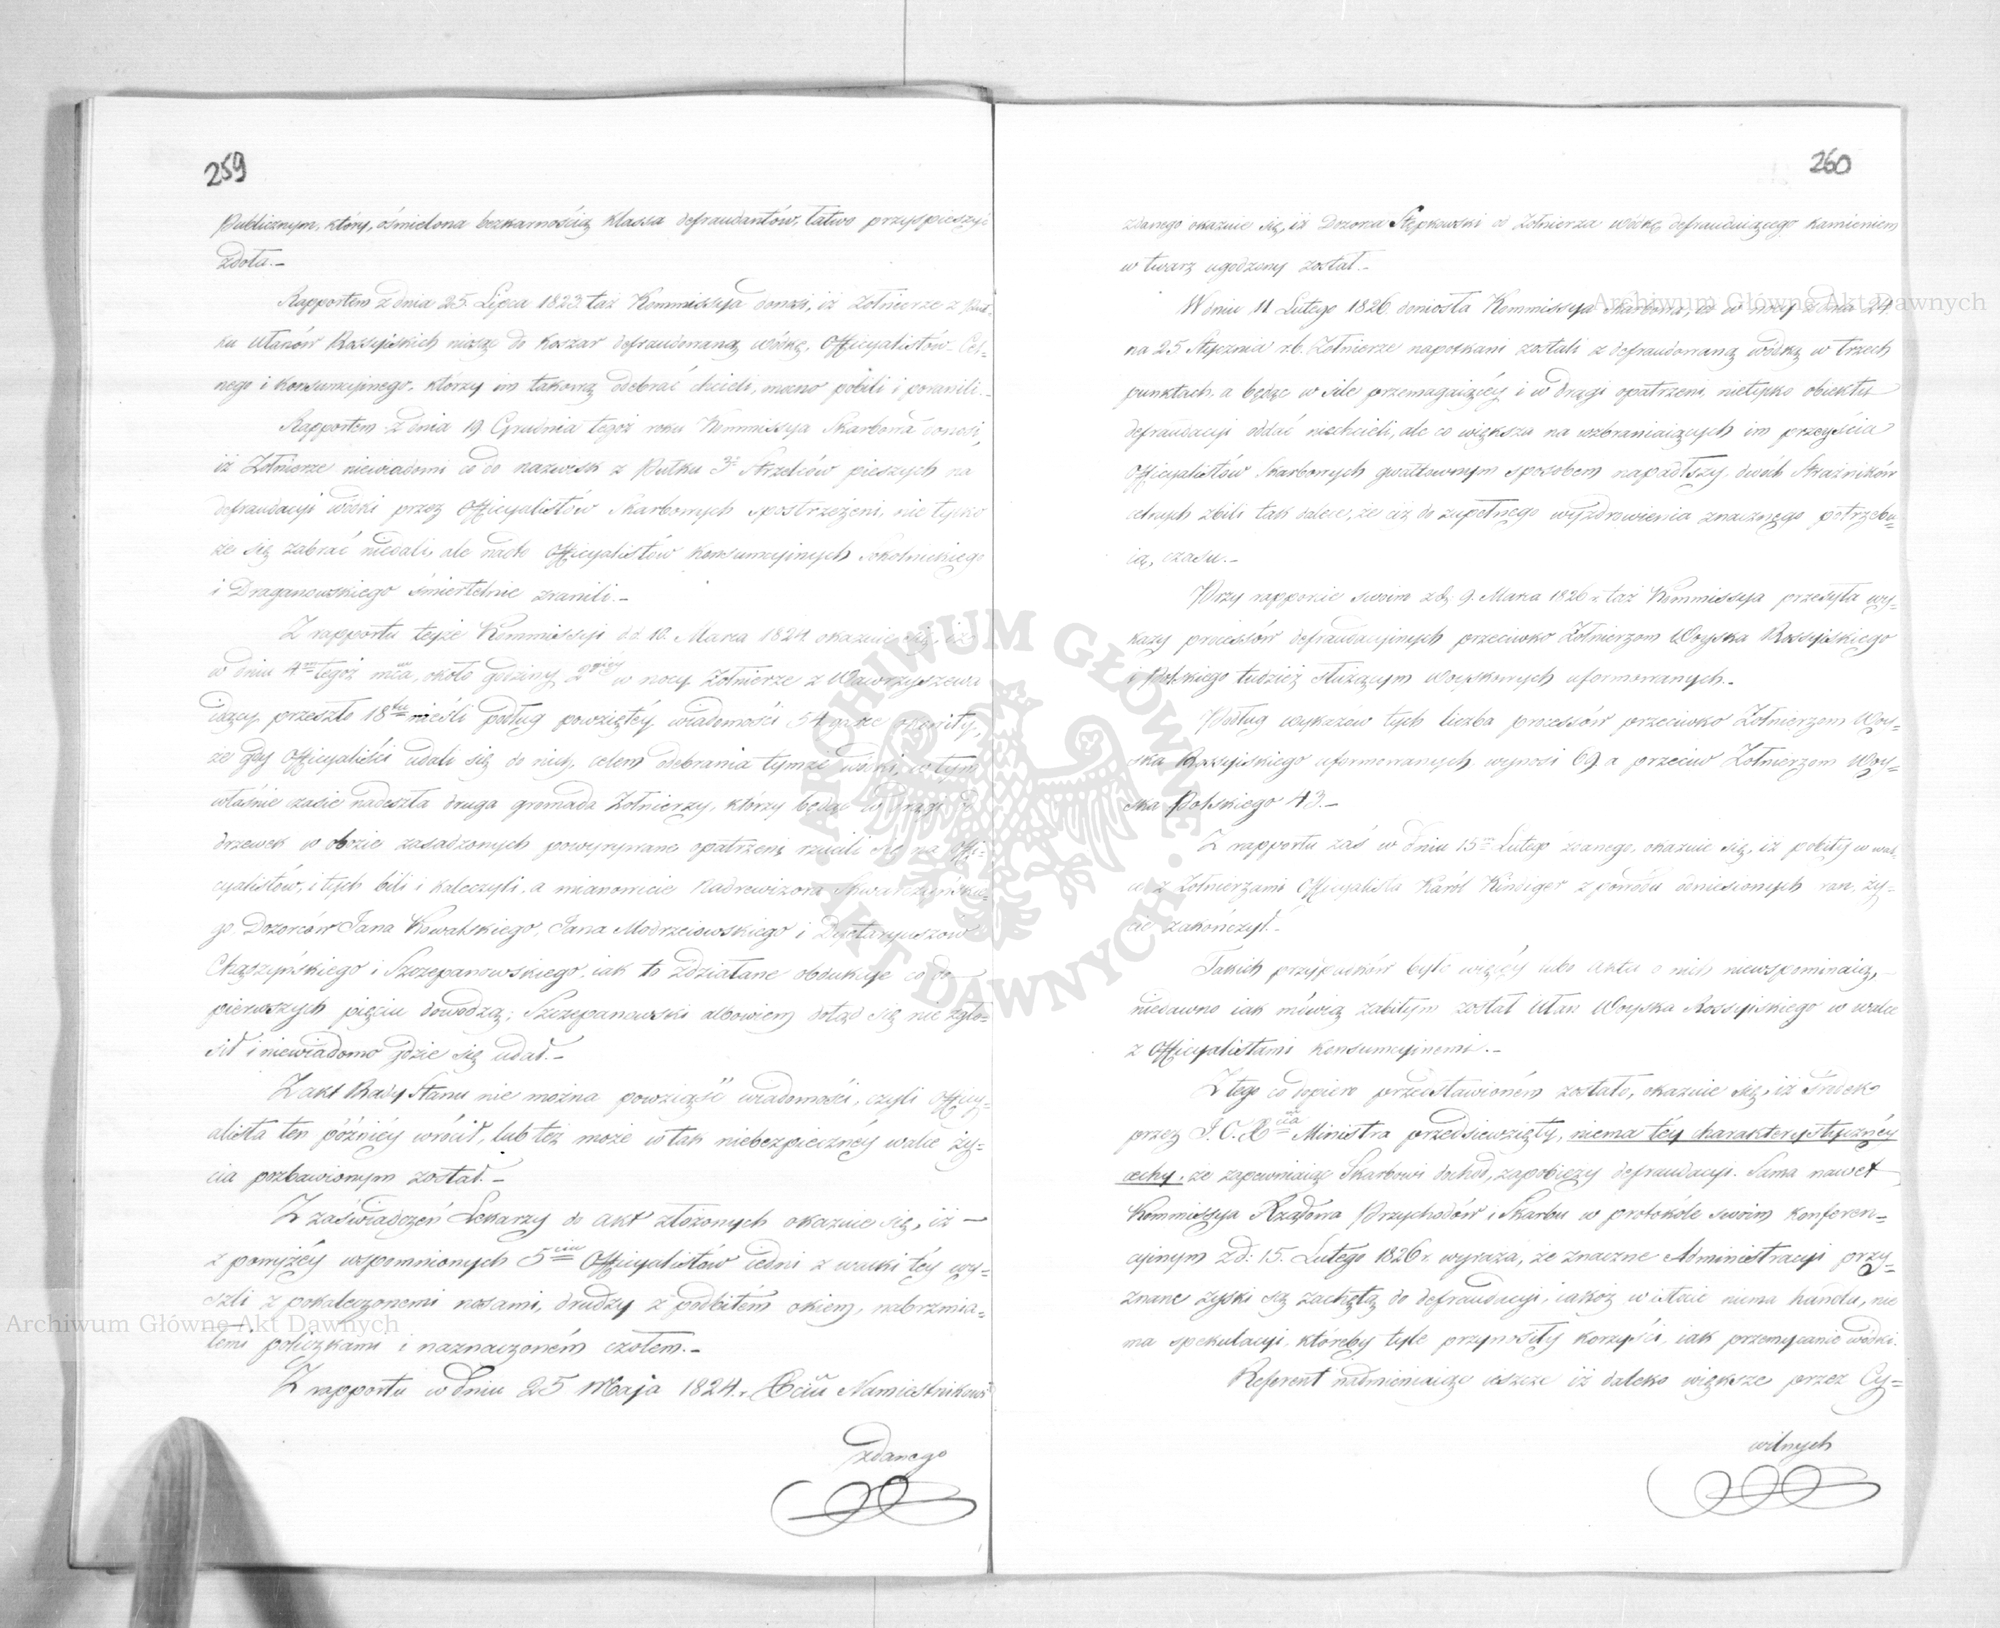 259
Publicznym, który, ośmielona bezkarnością klassa defraudantów, łatwo przyspieszyć
zdoła.-
Rapportem z dnia 25. Lipca 1823. taż Kommissya donosi, iż żołnierze z Puł-
ku Ułanów Rossyiskich niosąc do koszar defraudowaną wódkę, Officyalistów Cel-
nego i konsumcyinego, którzy im takową odebrać chcieli, mocno pobili i poranili.-
Rapportem z dnia 19 Grudnia tegoż roku Kommissya Skarbowa donosi,
iż Żołnierze niewiadomi co do nazwisk z Pułku 3o Strzelców pieszych na
defraudacyi wódki przez Officyalistów Skarbowych spostrzeżeni, nie tylko
że się zabrać niedali, ale nadto Officyalistów konsumcyinych Sokolnickiego
i Draganowskiego śmiertelnie zranili.-
Z rapportu teyże Kommissyi od 10. Marca 1824 okazuie się, iż
w dniu 4m tegoż mca, około godziny 2giéy w nocy Żołnierze z Wawrzyszewa
idący, przeszło 18tu nieśli podług powziętéy wiadomości 54 garce okowity,
że gdy Officyaliści udali się do nich, celem odebrania tymże wódki, w tym
właśnie czasie nadeszła druga gromada Żołnierzy, którzy będąc w drągi z
drzewek w obozie zasadzonych powyrywane opatrzeni, rzucili się na Offi-
cyalistów, i tych bili i kaleczyli, a mianowicie Nadrewizora Skwarczyńskie-
go Dozorców Jana Kowalskiego, Jana Modrzeiowskiego i Dyetaryuszów
Chądzyńskiego i Szczepanowskiego, iak to zdziałane obdukcye co do
pierwszych pięciu dowodzą; Szczepanowski albowiem dotąd się nie zgło-
sił i niewiadomo gdzie się udał.-
Z akt Rady Stanu nie można powziąść wiadomości, czyli Officy-
alista ten późniéy wrócił, lub też może w tak niebezpiecznéy walce ży-
cia pozbawionym został.-
Z zaświadczeń Lekarzy do akt złożonych okazuie się, iż -
z powyżéy wspomnionych 5ciu Officyalistów iedni z walki téy wy-
szli z pokaleczonemi nosami, drudzy z podbitém okiem, nabrzmia-
łemi policzkami i naznaczoném czołem.-
Z rapportu w dniu 25 Maja 1824. Xciu Namiestnikowi
zdanego
260
zdanego okazuie się, iż Dozorca Stępkowski od Żołnierza wódkę defraudującego kamieniem
w twarz ugodzony został.-
W dniu 11 Lutego 1826 doniosła Kommissya Skarbowa, że w nocy z dnia 24.
na 25 Stycznia r.b. Żołnierze napotkani zostali z defraudowaną wódką w trzech
punktach, a będąc w sile przemagaiącéy i w drągi opatrzeni, nietylko obiektu
defraudacyi oddać niechcieli, ale co większa na wzbraniaiących im przeyścia
Officyalistów Skarbowych gwałtownym sposobem napadłszy, dwóch Strażników
celnych zbili tak dalece, że ciż do zupełnego wyzdrowienia znacznego potrzebu-
ią, czasu.-
Przy rapporcie swoim z d. 9. Marca 1826 r. taż Kommissya przesyła wy-
kazy processów defraudacyinych przeciwko Żołnierzom Woyska Rossyiskiego
i Polskiego tudzież służącym Woyskowych uformowanych.-
Podług wykazów tych liczba processów przeciwko Żołnierzom Woy-
ska Rossyiskiego uformowanych wynosi 69. a przeciw Żołnierzom Woy-
ska Polskiego 43.-
Z rapportu zaś w dniu 15m Lutego zdanego, okazuie się, iż pobity w wal-
ce z Żołnierzami Officyalista Karól Kindiger z powodu doniesionych ran, ży-
cie zakończył.-
Takich przypadków było więcéy lubo akta o nich niewspominaią,
niedawno iak mówią zabitym został Ułan Woyska Rossyiskiego w walce
z Officyalistami konsumcyinemi.-
Z tego co dopiero przedstawioném zostało, okazuie się, iż środek
przez J. O. Xcia Ministra przedsięwzięty, niema téy charakterystycznéy
cechy, że zapewniaiąc Skarbowi dochód, zapobieży defraudacyi. Sama nawet
Kommissya Rządowa Przychodów i Skarbu w protokóle swoim konferen-
cyinym z d: 15. Lutego 1826 r. wyraża, że znaczne Administracyi przy-
znane zyski są zachętą do defraudacyi, iakoż w istocie niema handlu, nie
ma spekulacyi, któreby tyle przynosiły korzyści, iak przemycanie wódki.
Referent nadmieniaiąc ieszcze iż daleko większe przez Cy-
wilnych
Archiwum Główne Akt Dawnych
Archiwum Główne Akt Dawnych
ARCHIWUM GŁÓWNE AKT DAWNYCH